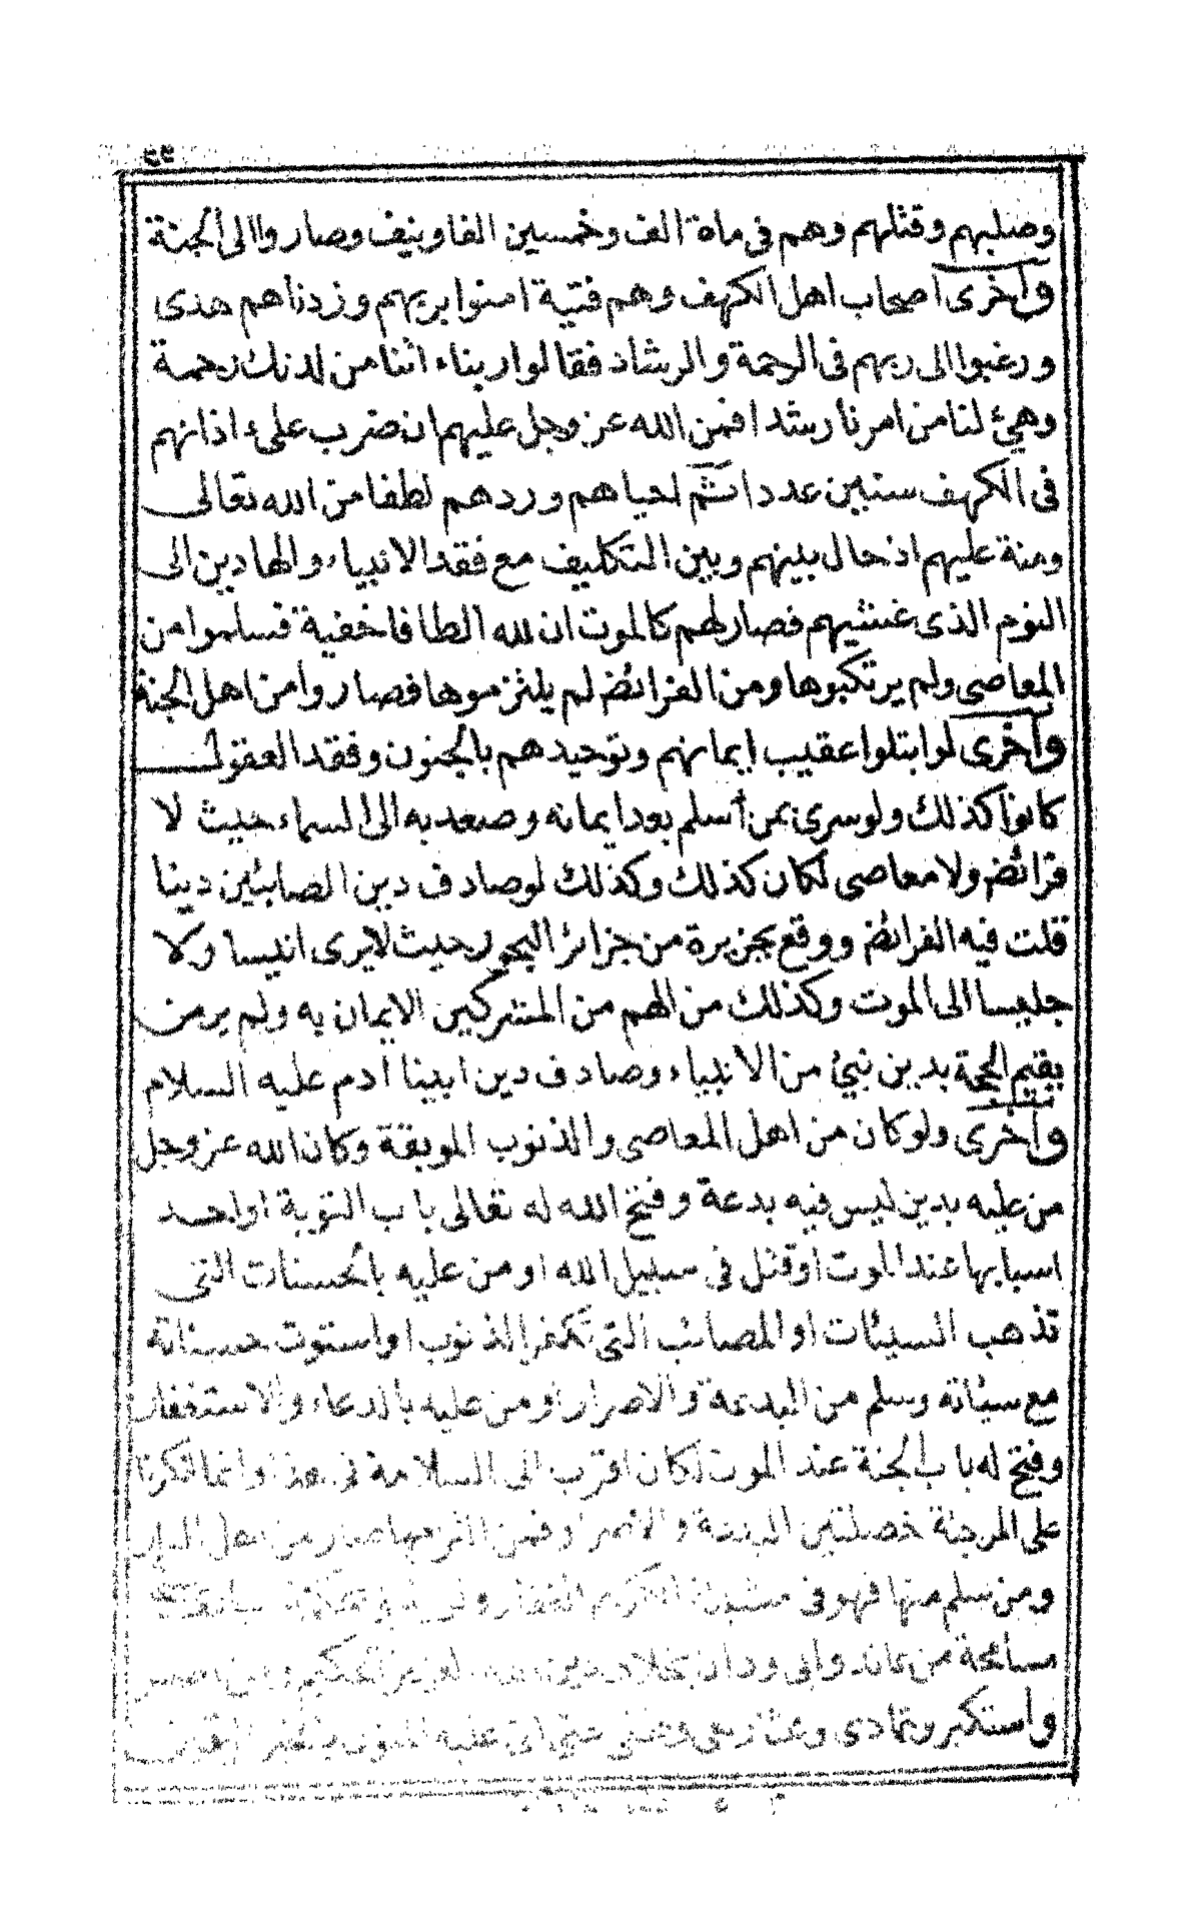 وصلبهم وقتلهم وهم في ماة الف وخمسين الفا ونيف وصاروا الى الجنة
وأخرى اصحاب اهل الكهف وهم فتية امنوا بربهم وزدناهم هدى
ورغبوا الى ربهم في الرحمة والرشاد فقالوا ربناء اتنا من لدنك رحمة
وهيئ لنا من امرنا رشدا فمن الله عز وجل عليهم ان ضرب علىء اذانهم
في الكهف سنين عددا ثم احياهم وردهم لطفا من الله تعالى
ومنة عليهم اذ حال بينهم وبين التكليف مع فقد الانبياء والهادين الى
النوم الذي غشيهم فصار لهم كالموت ان لله الطافا خفية فسلموا من
المعاصي ولم يرتكبوها ومن الفرائض لم يلتزموها فصاروا من اهل الجنة
وأخرى لو ابتلوا عقيب ايمانهم وتوحيدهم بالجنون وفقد العقول
كانوا كذلك ولو سرى بمن أسلم بعد ايمانه وصعد به الى السماء حيث لا
فرائض ولا معاصي لكان كذلك وكذلك لو صادف دين الصابئين دينا
قلت فيه الفرائض ووقع بجزيرة من جزائر البحور حيث لا يرى انيسا ولا
جليسا الى الموت وكذلك من الهم من المشركين الايمان به ولم ير من
يقيم الحجة بدين نبئ من الانبياء وصادف دين ابينا ادم عليه السلام
وأخرى ولو كان من اهل المعاصي والذنوب الموبقة وكان الله عز وجل
من عليه بدين ليس فيه بدعة وفتح الله له تعالى باب التوبة او احد
اسبابها عند الموت او قتل في سبيل الله او من عليه بالحسنات التي
تذهب السيئات او المصائب التي تكفر الذنوب او استوت حسناتة
مع سيئاته وسلم من البدعة والاصرار او من عليه بالدعاء والاستغفار
وفتح له باب الجنة عند الموت لكان اقرب الى السلامة في هذا وانما انكرنا
على المرجئة خصلتين البدعة والاصرار فمن اثر
ومن سلم منها فهو في الكريم الغفار
مسامحة من عاند وابى العزيز الحكيم
واستكبر وتمادى